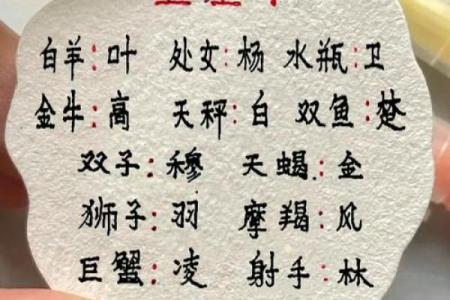 白羊:叶 处女:杨 水瓶:卫
金牛:高 天秤:白 双鱼:楚
双子:穆 天蝎:金
狮子:羽 摩羯:风
巨蟹:凌 射手:林